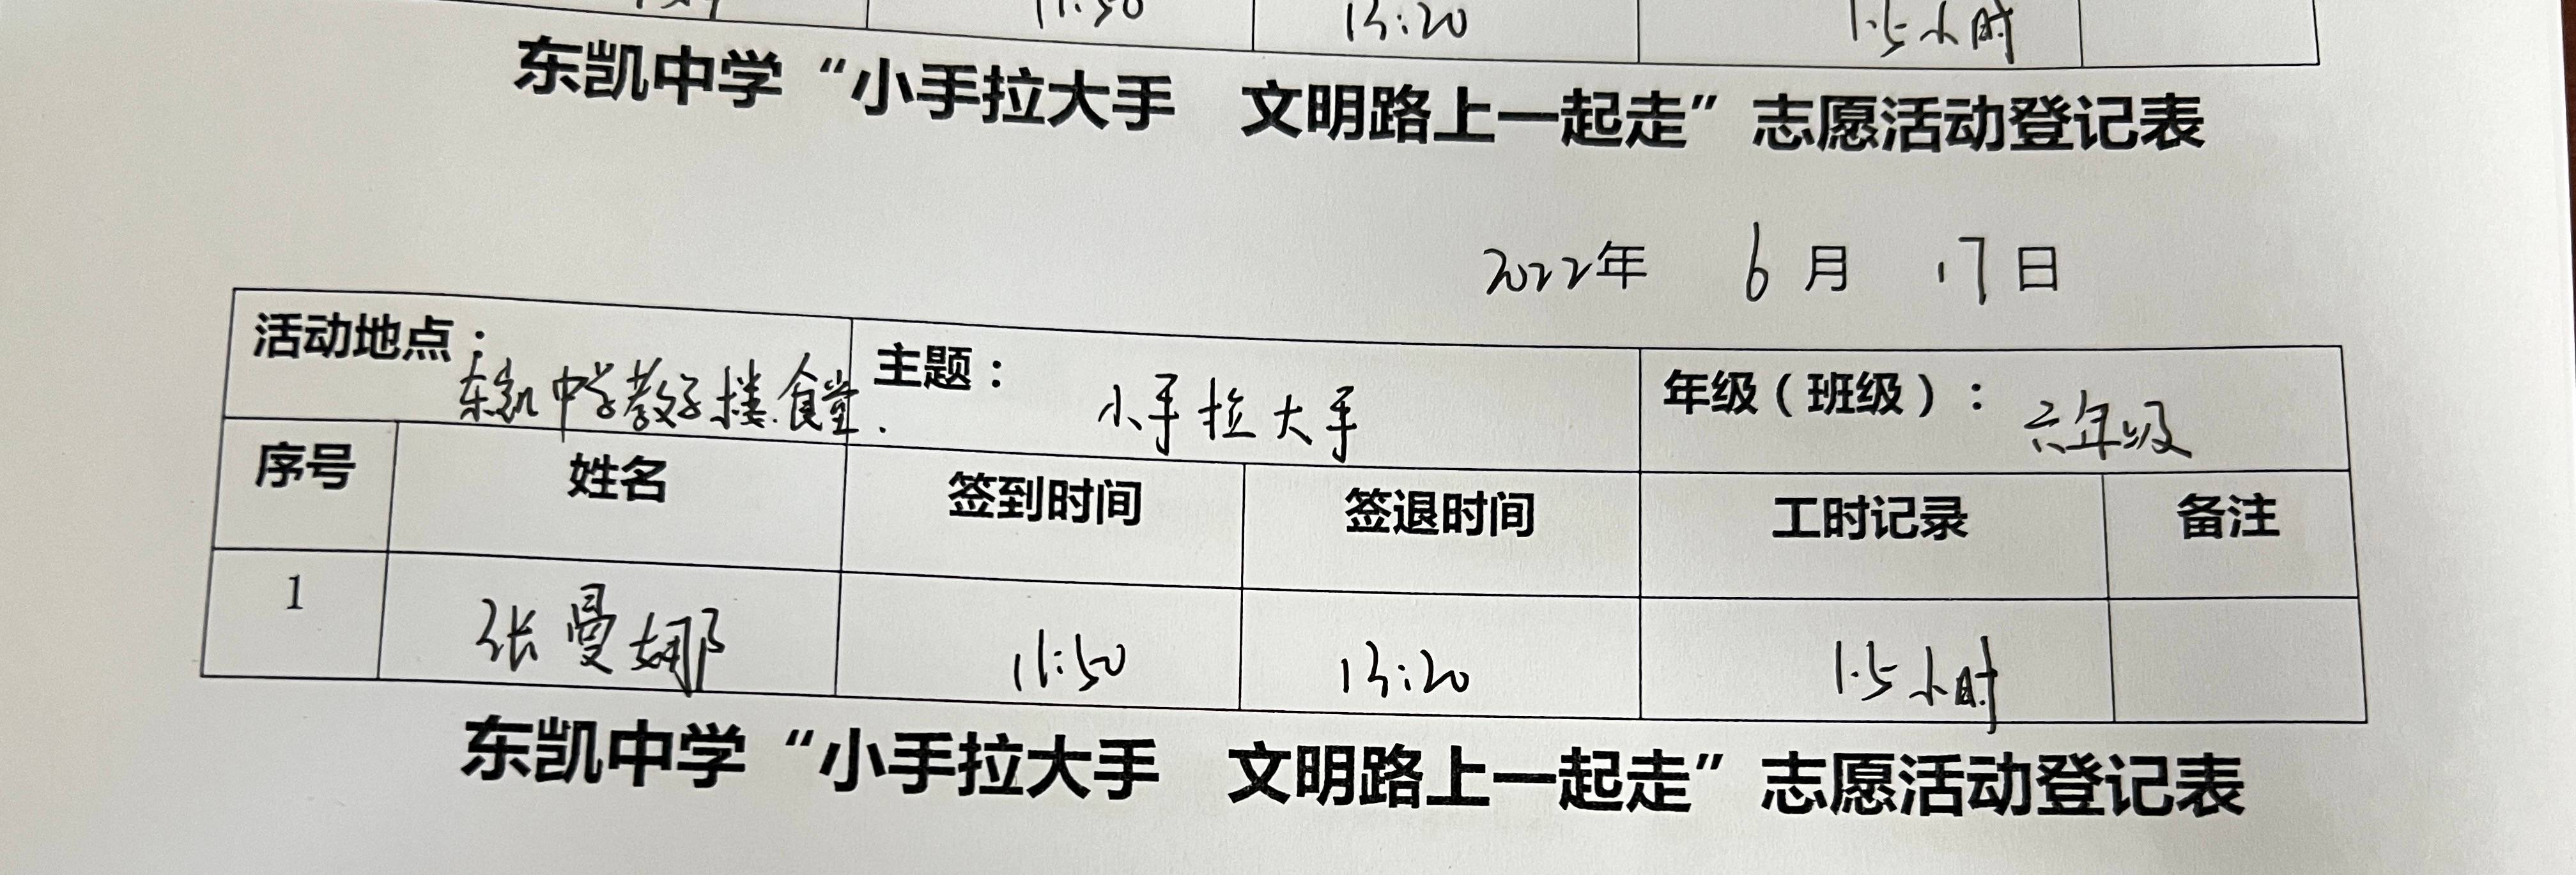 11:50 13:20 1.5小时
东凯中学“小手拉大手 文明路上一起走”志愿活动登记表
2022年 6月 17日
活动地点：东凯中学教学楼.食堂. 主题：小手拉大手 年级（班级）：六年级
序号 姓名 签到时间 签退时间 工时记录 备注
1 张曼娜 11:50 13:20 1.5小时
东凯中学“小手拉大手 文明路上一起走”志愿活动登记表